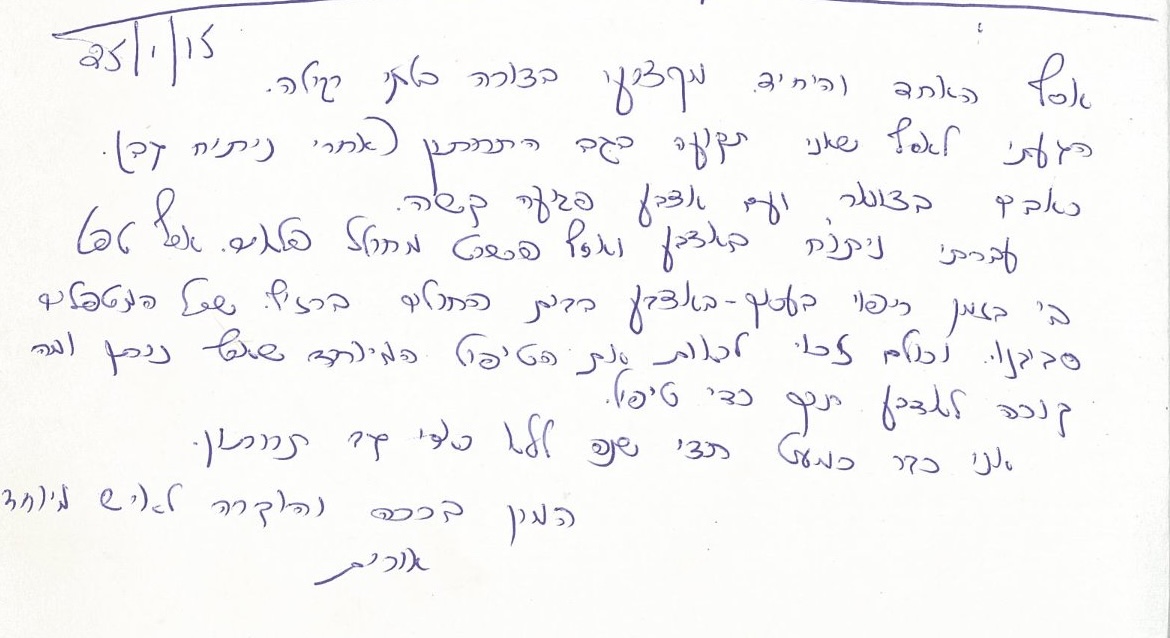 25/1/15
אסף האחד והיחיד. מקצועי בצורה בלתי רגילה.
הגעתי לאסף שאני תקועה בגב התחתון (אחרי ניתוח גב).
כאבים בצוואר ועם אצבע פגיעה קשה.
עברתי ניתוח באצבע ואסף פשוט מחולל פלאים. אסף טפט
בי בזמן ריפוי בעיסוק-באצבע בבית החולים ברזילי. שכל המטפלים
סביבנו. וכולם זכו לראות את הטיפול המיוחד שאסף נותן ומה
קורה לאצבע תוך כדי טיפול.
אני כבר כמעט חצי שנה ללא כאבי גב תחתון.
המון ברכה והוקרה לאיש מיוחד
אורית